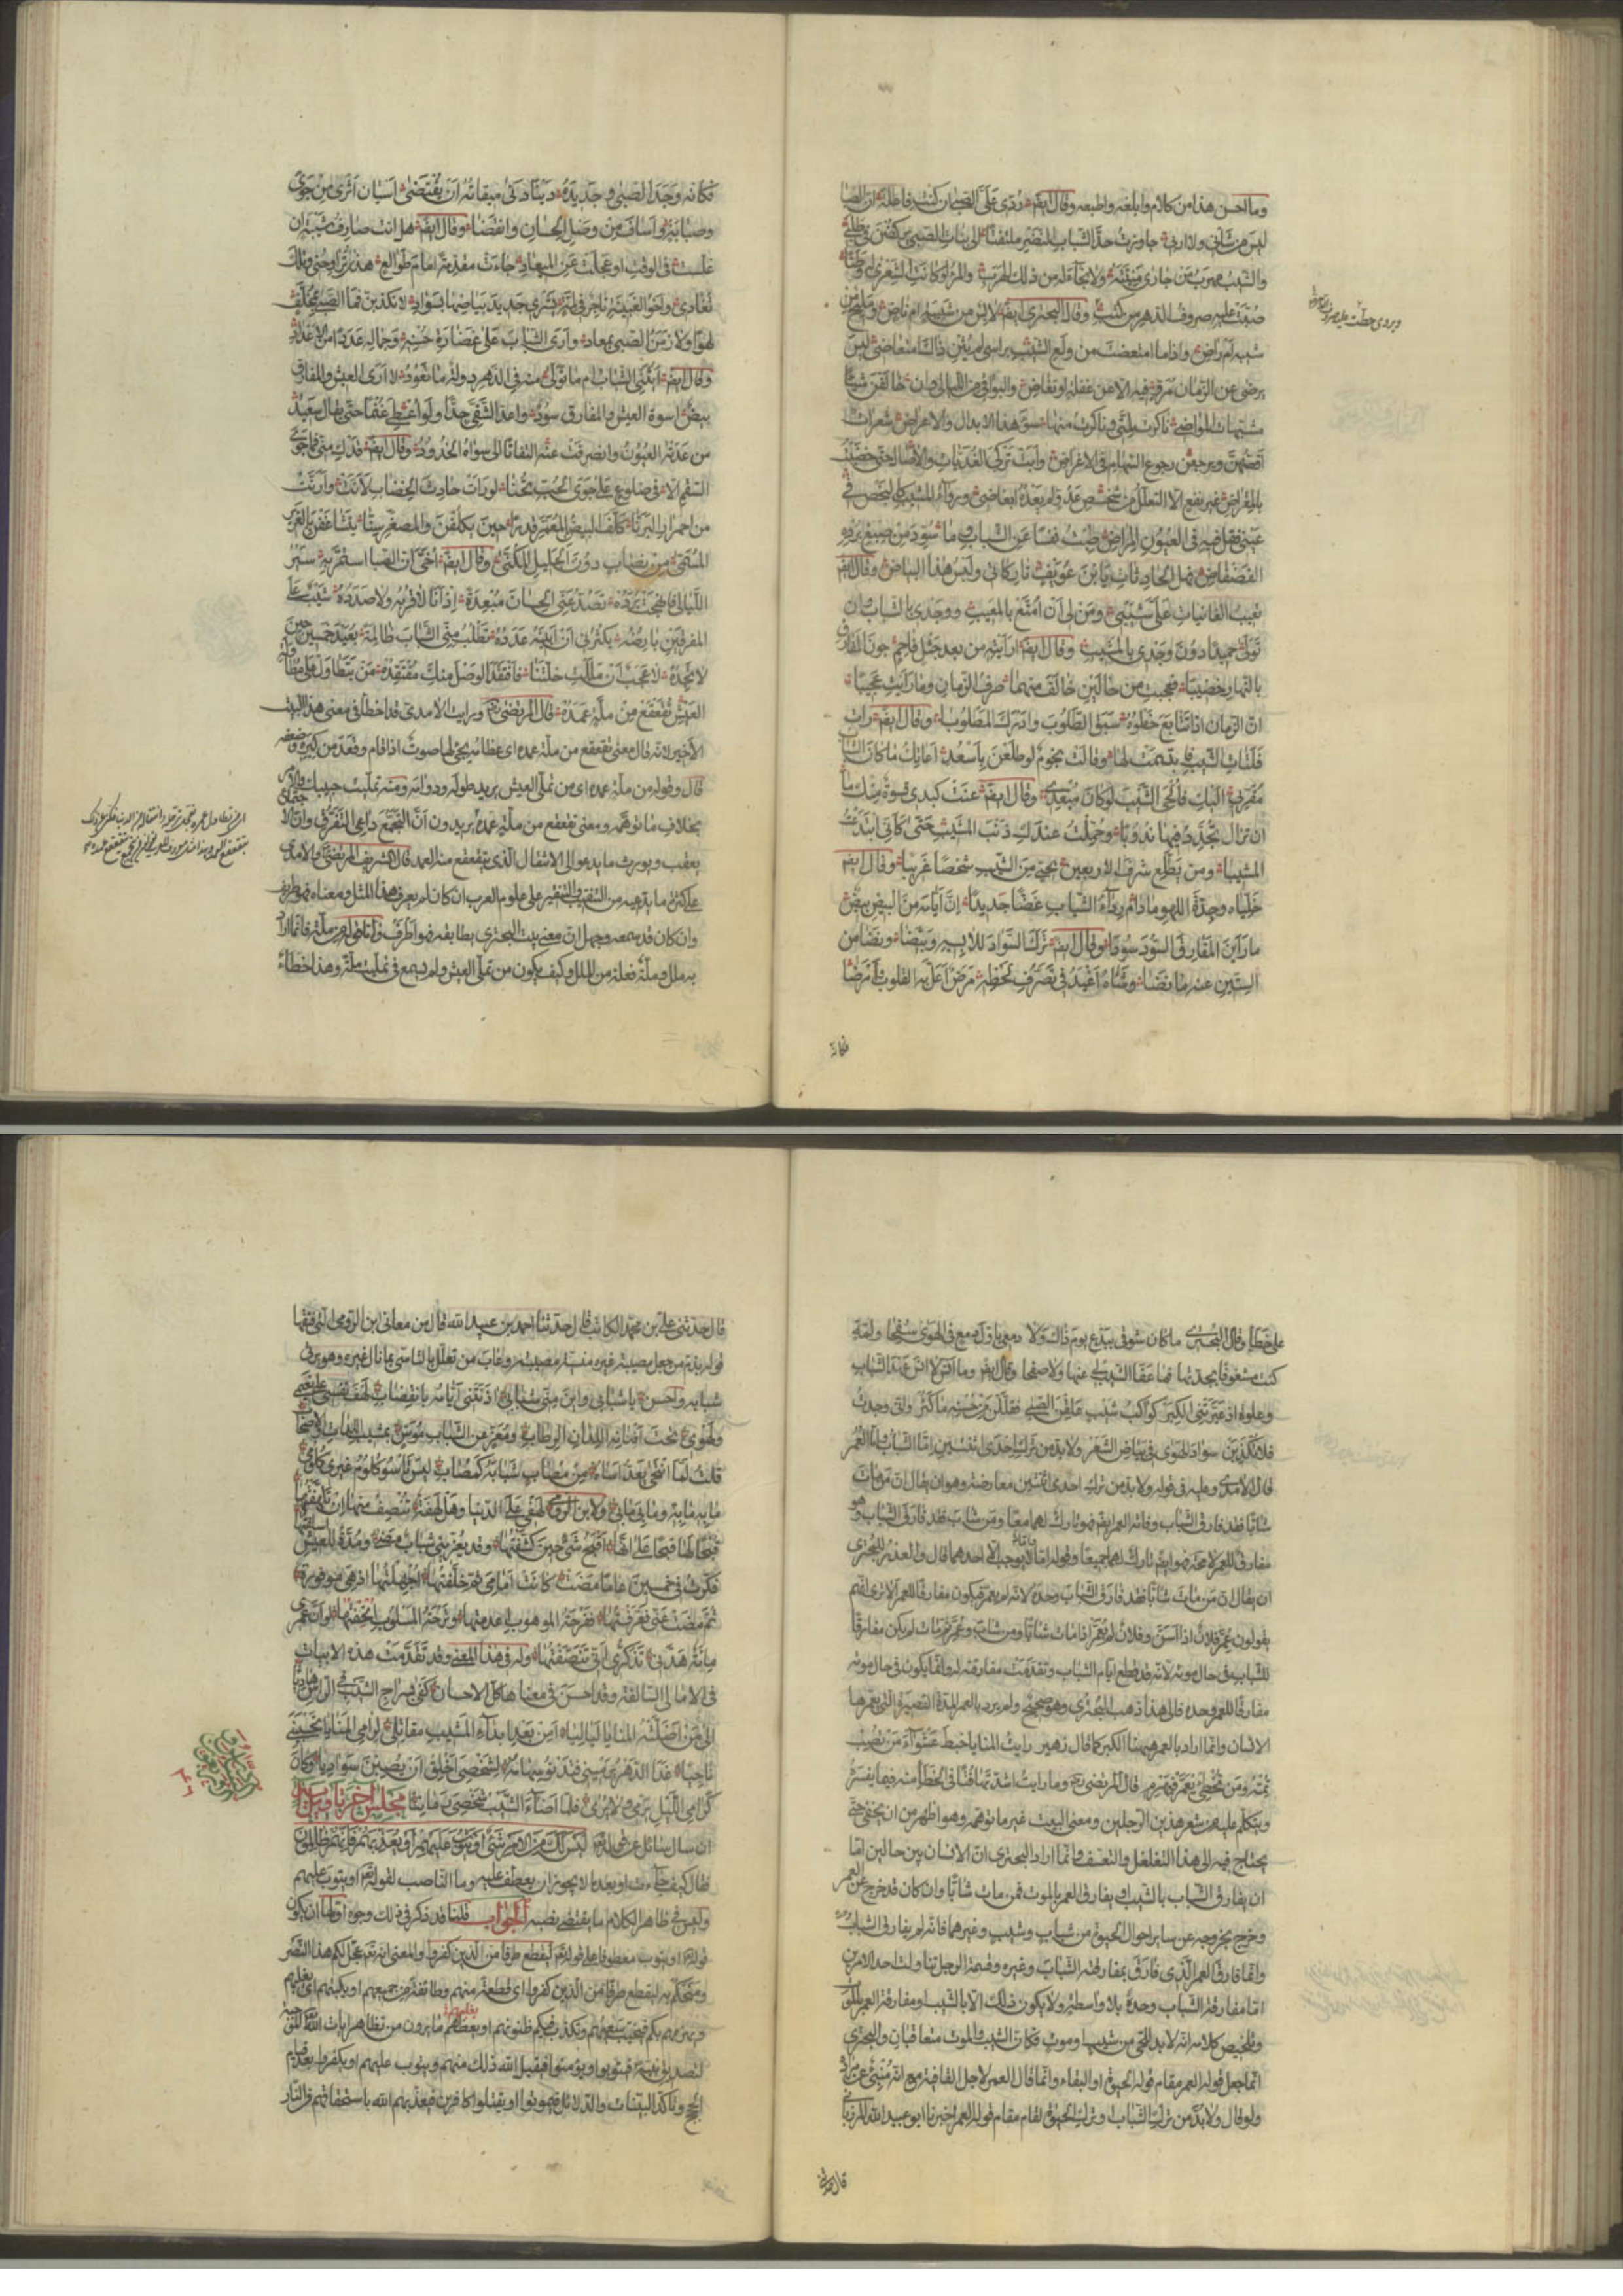 وما احسن هذا من كلام وابلغه واطبعه وقال ايضه ردي علي الصبي ان كنت فاعلة ان الصبا
ليس من شاني ولا اربي جاوزت حد الشباب النضير ملتفتا الى بنات الصبي يركضن في طلبي
والشيب مهرب من جارى منيته ولا نجاء له من ذلك الهرب والمرء لو كانت الشعرى له وطنا
صبت عليه صروف الدهر من كثب وقال البحترى ايضه لابس من شبيبة ام ناض ومليح من
شيبه ام راض واذا ما امتعضت من ولع الشيب براسي لم يثن ذاك امتعاضي ليس
يرضى عن الزمان مرو فيه الا عن غفلة او تغاض والبواقى من الليالى وان خالفن شيئا
مشبهات المواضى ناكرت لمتى وناكرت منها سوء هذا الابدال والاعراض شعرات
اقصهن ويرجعن رجوع السهام فى الاغراض وابت تركى الغديات والآصال حتى خضبت
بالمقراض غير نفع الا التعلل من شخص عدو لم يعده ابغاضى ورواء المشيب كالبخص فى
عينى فقل فيه فى العيون المراض طبت نفسا عن الشباب وما سود من صبغ برده
الفضفاض فهل الحادثات يا بن عويف تاركاتى ولبس هذا البياض وقال ايضه
تعيب الغانيات علي شيبي ومن لى ان امتع بالمعيب ووجدى بالشباب وان
تولى حميدا دون وجدى بالمشيب وقال ايضه ارايته من بعد جثل فاحم جون المفارق
بالنهار خضيبا فعجبت من حالين خالف منهما ريب الزمان وما رايت عجيبا
ان الزمان اذا تتابع خطوه سبق الطلوب وادرك المطلوبا وقال ايضه رات
فلتات الشيب فابتسمت لها وقالت نجوم لو طلعن باسعد اعاتك ما كان الشباب
مقربى اليك فالحى الشيب لو كان مبعدى وقال ايضه عنت كبدى قسوة منك ما
ان تزال تجدد فيها ندوبا وحملت عندك ذنب المشيب حتى كأنى ابتدعت
المشيبا ومن يطلع شرف الاربعين يحيى من الشيب شخصا غريبا وقال ايضه
خلياه وجدة اللهو ما دام رداء الشباب غضا جديدا ان ايامه من البيض بيض
ما راين المفارق السود سودا وقال ايضه ترك السواد للابسيه وبيضا ونضا من
الستين عنه ما نضا وشاه اغيد فى تصرف لحظه مرض اعل به القلوب وامرضا
فكانه
ويروى حطت عليه صروف
فكانه وجد الصبى وجديده دينا دنى ميقاته ان يقتضى اسيان اثرى من جوى
وصبابة واساف من وصل الحسان وانفضا وقال ايضه هل انت صارف شيبة ان
غلست فى الوقت او عجلت عن الميعاد جاءت مقدمة امام طوالع هذى تراوحنى وتلك
تغادى واخو الغبينة تاجر فى لمة يشرى جديد بياضها بسواد لا تكذبن فما الصبى بمخلف
لهوا ولا زمن الصبى بمعاد وارى الشباب على غضارة حسنه وجماله عددا من الاعداد
وقال ايضه ايثنى الشباب ام ما تولى منه فى الدهر دولة ما تعود لا ارى العيش والمفارق
بيض اسوة العيش والمفارق سود واعد الشقى جدا ولو اعطى غنما حتى يقال سعيد
من عدته العيون وانصرفت عنه التفاتا الى سواه الخدود وقال ايضه قدك منى فما جوى
السقم الا فى ضلوع على جوى الحب تحنا لو رات حادث الخضاب لأنت وارنت
من احمرار اليرنا كلف البيض بالمعمر قدرا حين يكلفن والمصغر سنا يتشاغفن بالغرير
المسمى من تصاب دون الجليل المكنى وقال ايضه اخي ان الصبا استمر به سير
الليالى فانهجت برده تصد عنى الحسان مبعدة اذ انا لا قربه ولا صدده شيب على
المفرقين بارضه يكثرنى ان ابينه عدده تطلب منى الشباب ظالمة بعيد خمسين حين
لا تجده لا عجب ان مللت خلتنا فافتقد الوصل منك مفتقده من يتطاول على مطاولة
العيش تقعقع من ملة عمده قال المرتضى رح ورايت الآمدى قد اخطأ فى معنى هذا البيت
الاخير لانه قال معنى تقعقع من ملة عمده اى عظامه يجئ لها صوت اذا قام وقعد من كبره وضعفه
قال وقوله من ملة عمده اى من تملي العيش يريد طوله ودوامه ومنه تمليت حبيبك والامر
بخلاف ما توهمه ومعنى تقعقع من ملة عمده يريدون ان التجمع داعى التفرق وان الاجتماع
يعقب ويورث ما يدعو الى الانتقال الذى يتقعقع منه العمد قال الشريف المرتضى والآمدى
على كثرة ما يدعيه من التنقيب والتنقير على علوم العرب ان كان لم يعرف هذا المثل ومعناه فهو طريف
وان كان قد سمعه وجهل ان معنى بيت البحترى يطابقه فهو اطرف واما قوله من ملة فانما اراد
به ملل وملة فعلة من الملل وكيف يكون من تملى العيش ولم يسمع فى تمليت ملة وهذا خطاء
على خطأ وقال البحترى ما كان شوقى ببدع يوم ذاك ولا دمعى باول دمع فى الهوى سفحا ولمة
كنت مشغوفا بجدتها فما عفا الشيب لى عنها ولا صفحا وقال ايضه وما انس لا انس عهد الشباب
وعلوة اذ عيرتنى الكبر كواكب شيب علقن الصبى فقللن من حسنه ما كثر وانى وجدت
فلا تكذبن سواد الهوى فى بياض الشعر ولا بد من ترك احدى اثنتين اما الشباب واما العمر
قال الآمدى وعليه فى قوله ولا بد من ترك احدى اثنتين معارضة وهو ان يقال ان من مات
شابا فقد فارق الشباب وفاته العمر ايضه فهو تارك لهما معا ومن شاب فقد فارق الشباب وهو
مفارق للعمر لا محة فهو ايضه تارك لهما جميعا وقوله اما واما لا يوجب الا احدهما قال والعذر للبحترى
ان يقال ان من مات شابا فقد فارق الشباب وحده لانه لم يعمر فيكون مفارقا للعمر الا ترى انهم
يقولون عمر فلان اذا اسن وفلان لم يعمر اذا مات شابا ومن شاب وعمر ثم مات لم يكن مفارقا
للشباب فى حال موته لانه قد قطع ايام الشباب وتقدمت مفارقته له وانما يكون فى حال موته
مفارقا للعمر وحده فالى هذا ذهب البحترى وهو صحيح ولم يرد بالعمر المدة القصيرة التى يعمرها
الانسان وانما اراد بالعمر ههنا الكبر كما قال زهير رايت المنايا خبط عشواء من تصب
تمته ومن تخطئ يعمر فيهرم قال المرتضى رح وما رايت اشد تهافتا فى الخطأ منه فيما يفسره
ويتكلم عليه من شعر هذين الرجلين ومعنى البيت غير ما توهمه وهو اظهر من ان يخفى حتى
يحتاج فيه الى هذا التغلغل والتعسف وانما اراد البحترى ان الانسان بين حالين اما
ان يفارق الشباب بالشيب او يفارق العمر بالموت فمن مات شابا وان كان قد خرج عن العمر
وخرج بخروجه عن ساير احوال الحيوة من شباب وشيب وغيرهما فانه لم يفارق الشباب وحده
وانما فارق العمر الذى فارق بمفارقته الشباب وغيره وقسمة الرجل تناولت احد الامرين
اما مفارقة الشباب وحده بلا واسطة ولا يكون ذلك الا بالشيب او مفارقة العمر بالموت
وتلخيص كلامه انه لا بد للحى من شيب او موت فكان الشيب والموت متعاقبان والبحترى
انما جعل قوله العمر مقام قوله الحيوة او البقاء وانما قال العمر لاجل القافية مع انه منبئ عن مراده
ولو قال ولا بد من ترك الشباب او ترك الحيوة لقام مقام قوله العمر اخبرنا ابو عبيد الله المرزبانى
قال حدثنى
قال حدثنى على بن محمد الكاتب قال حدثنا احمد بن عبيد الله قال من معانى ابن الرومى التى فتقها
قوله يذم من جعل مصيبة غيره منسية مصيبته وعاب من تعلل بالتاسى بما نال غيره وهو يرثى
شبابه واحسن يا شبابى واين منى شبابى اذنتنى ايامه بانقضاب لهف نفسى على نعيمى
ولهوى تحت افنانه اللدان الرطاب ومعز من الشباب مؤس بمشيب اللدات والاصحاب
قلت لما انتحى يعد اساه من مصاب شبابه كمصاب ليس تأسو كلوم غيرى كلومى
ما به ما به وما بى ما بى ولابن الرومى لهفى على الدنيا وهل لهفة تنصف منها ان تلهفتها
قبحا لها قبحا على انها اقبح شئ حين كشفتها وقد يعزينى شباب مضى ومدة للعيش اسلفتها
فكرت فى خمسين عاما مضت كانت امامى ثم خلفتها اجهلتها اذ هى موفورة
ثم مضت عنى فعرفتها ففرحة الموهوب اعدمتها وترحة المسلوب الحفتها لو ان عمرى
مائة هدنى تذكرى انى تنصفتها وله فى هذا المعنى وقد تقدمت هذه الابيات
فى الامالى السالفة وقد احسن فى معناها كل الاحسان كفى بسراج الشيب فى الراس هاديا
الى من اضلته المنايا لياليا امن بعد ابداء المشيب مقاتلى لرامى المنايا تحسبينى
ناجيا غدا الدهر يرمينى فتدنو سهامه لشخصى اخلق ان يصبن سواديا وكان
كرامى الليل يرمى ولا يرى فلما اضاء الشيب شخصى رمانيا مجلس آخر تاويل آية
ان سال سائل عن قوله تعه ليس لك من الامر شئ او يتوب عليهم او يعذبهم فانهم ظالمون
فقال كيف جاءت او بعد ما لا يجوز ان يعطف عليه وما الناصب لقوله تعه او يتوب عليهم
وليس فى ظاهر الكلام ما يقتضى نصبه الجواب قلنا قد ذكر فى ذلك وجوه اولها ان يكون
قوله تعه او يتوب معطوفا على قوله تعه ليقطع طرفا من الذين كفروا والمعنى انه تعه عجل لكم هذا النصر
ومنحكم به ليقطع طرفا من الذين كفروا اى قطعة منهم وطائفة من جميعهم او يكبتهم اى يغلبهم
ويهزمهم بكم فيخيب سعيهم ويكذب فيكم ظنونهم او يعظهم ما يرون من تظاهر ايات الله الموجبة
لتصديق نبيه فيتوبوا ويؤمنوا فيقبل الله ذلك منهم ويتوب عليهم او يكفروا بعد قيام
الحجج وتاكد البينات والدلائل فيموتوا او يقتلوا كافرين فيعذبهم الله باستحقاقهم فى النار